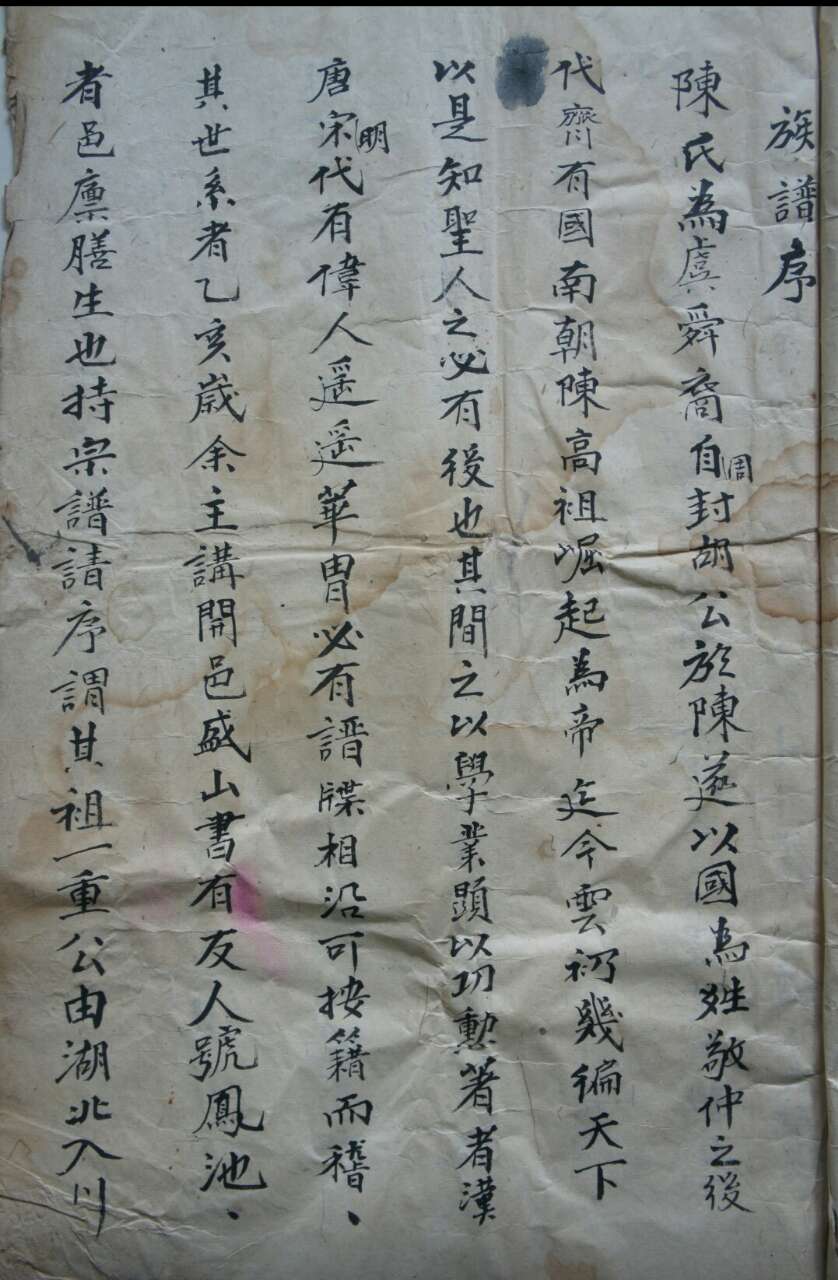 族譜序
陳氏為虞舜裔自周封胡公於陳遂以國為姓敬仲之後
代齊有國南朝陳高祖崛起為帝迄今雲礽幾徧天下
以是知聖人之必有後也其間之以學業顕以功勲著者漢
唐宋明代有偉人遥遥華胄必有譜牒相沿可按籍而稽、
其世系者乙亥歲余主講開邑盛山書有友人號鳳池、
者邑廩膳生也持宗譜請序謂其祖一重公由湖北入川